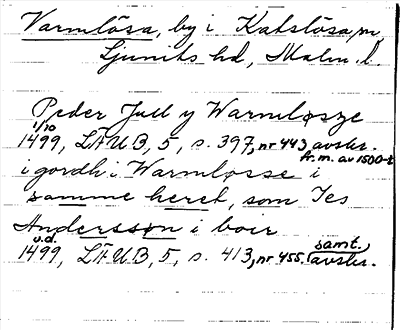 Varmlösa, by i Katslösa sn,
Ljunits hd, Malm. l.
Peder Jull y Warmløsze
1/10
1499, LÄUB, 5, s. 397, nr 443 avskr.
fr. m. av 1500-t
i gordh i Warmløsse i
samme heret, som Jes
Anderssøn i boir
u.d.
1499, LÄUB, 5, s. 413, nr 455. samt. avskr.